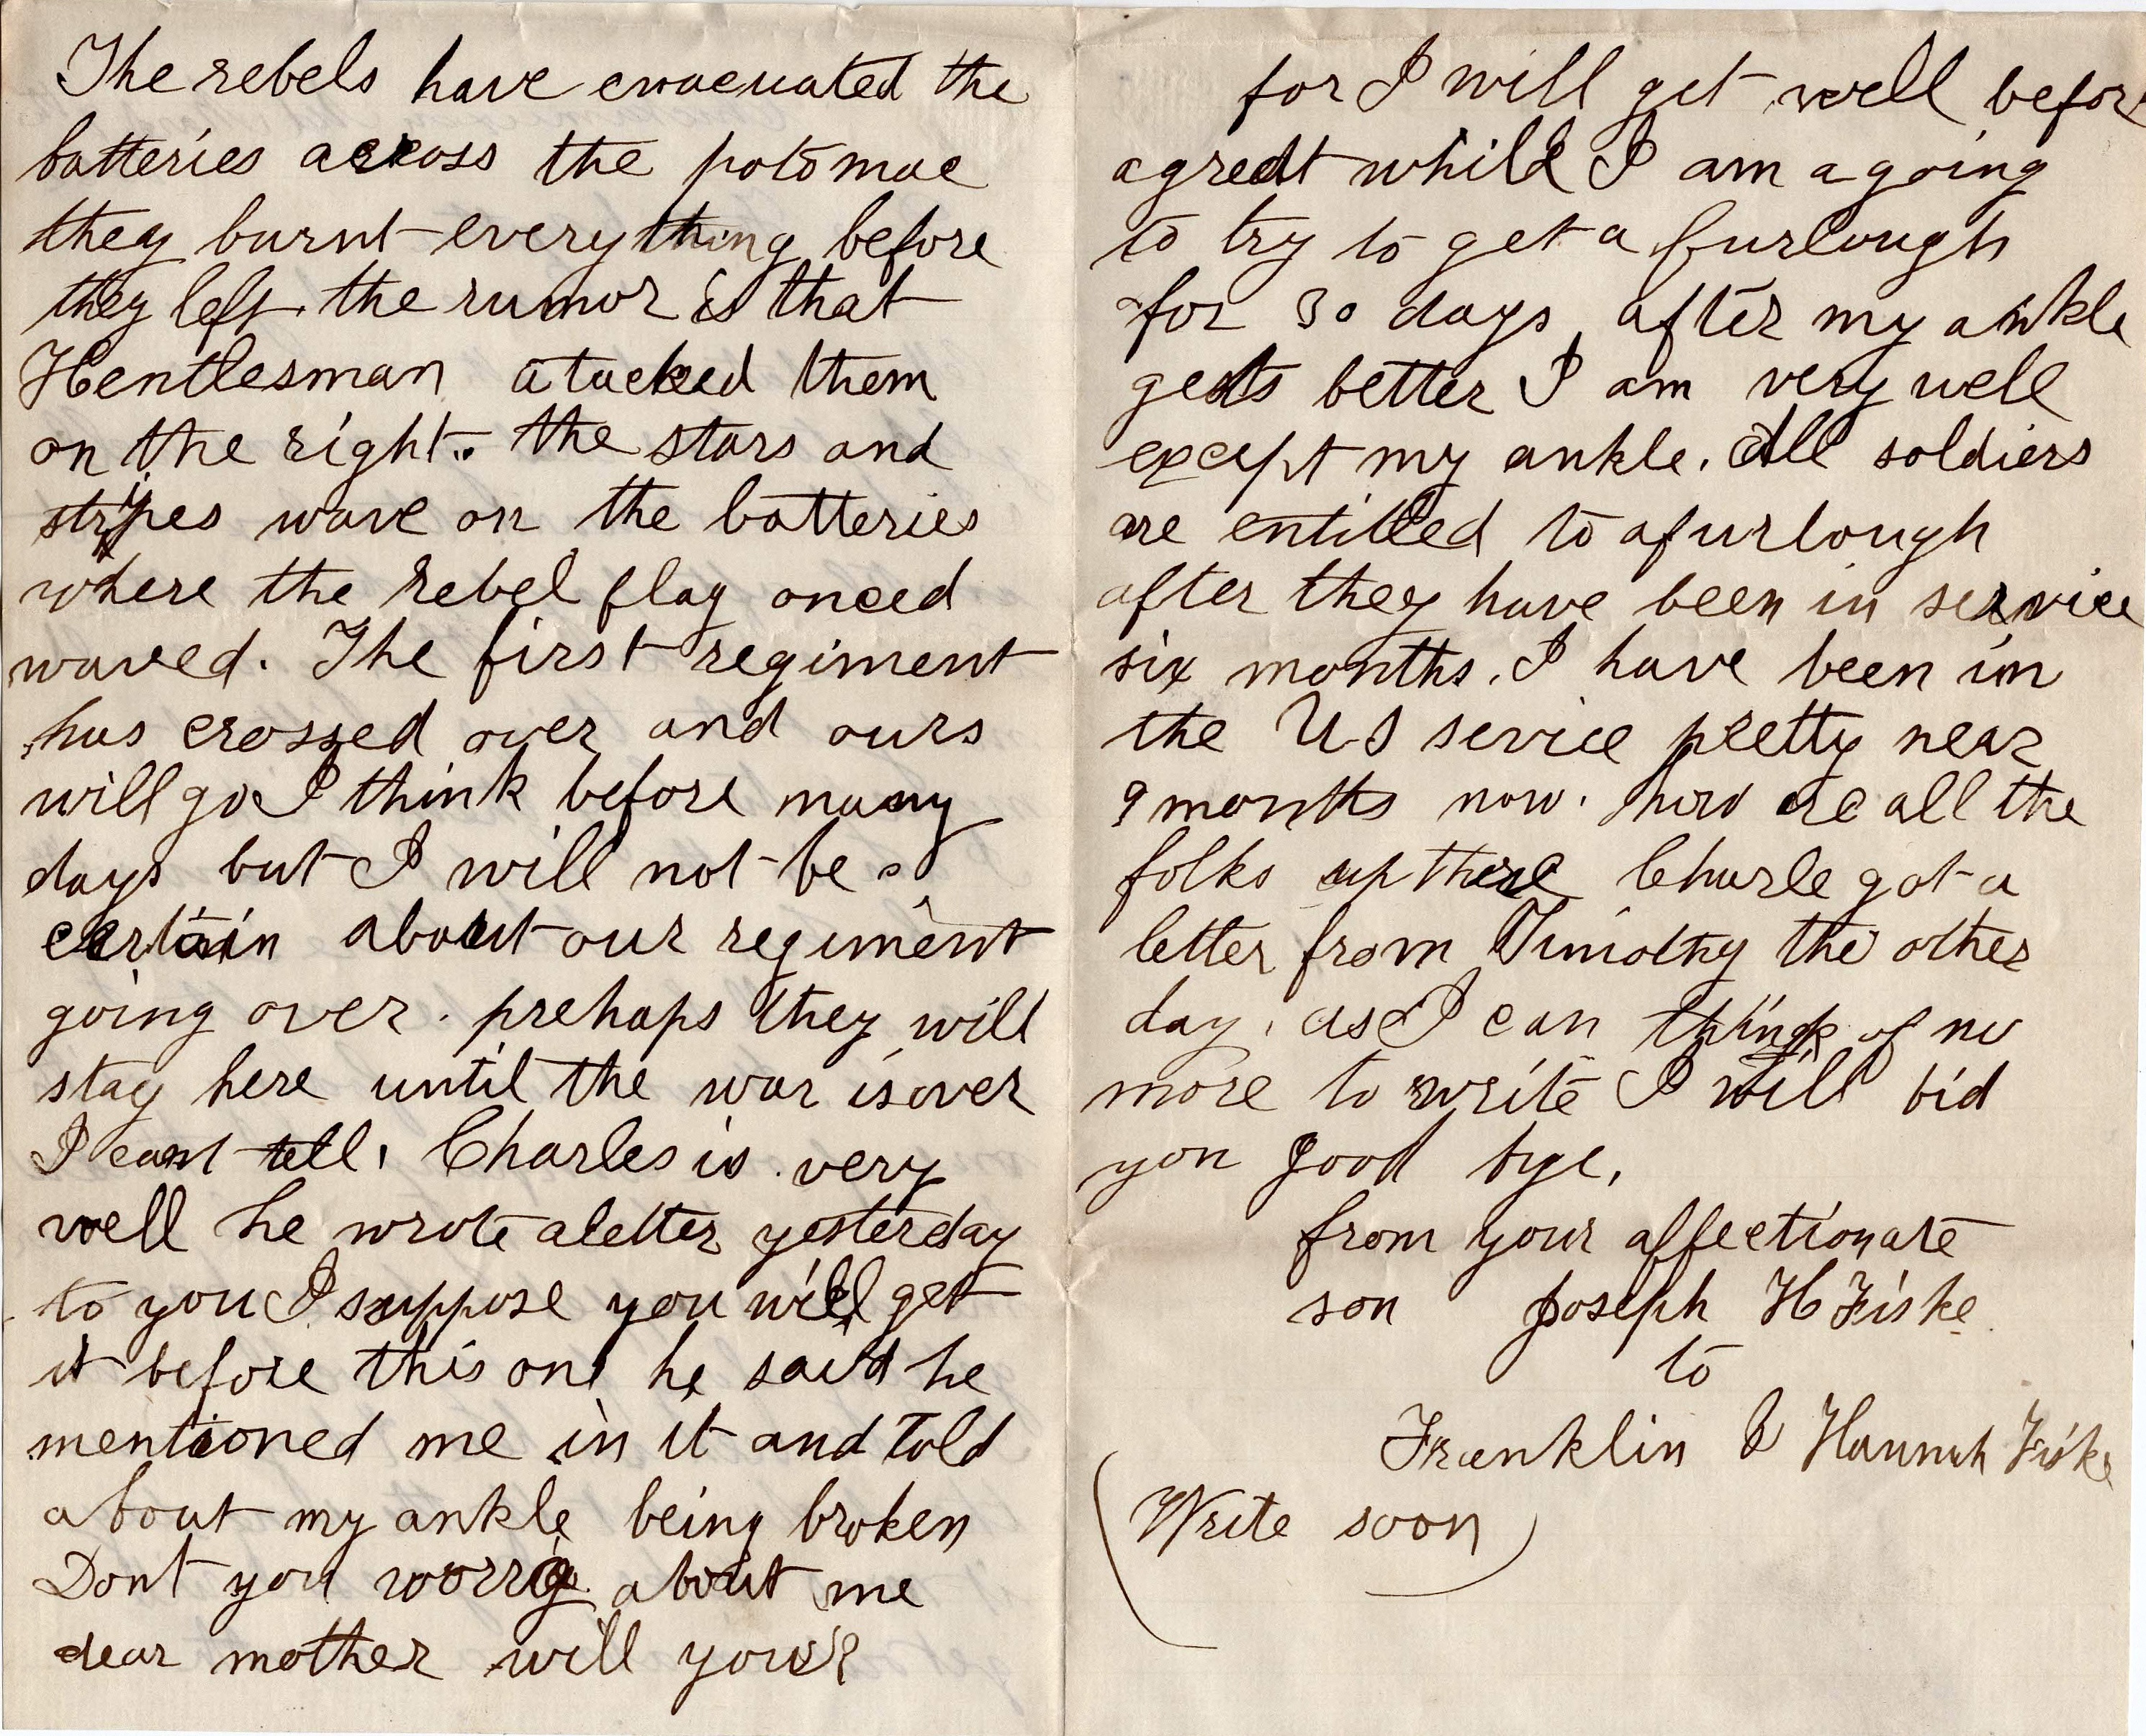 The rebels have evacuated the
batteries across the potomac
they burnt everything before
they left. the rumor is that
Hentlesman atacked them
on the right. the stars and
stripes wave on the batteries
where the rebel flag onced
waved. The first regiment
has crossed over and ours
will go I think before many
days but I will not be
certain about our regiment
going over. prehaps they will
stay here until the war is over
I cant tell. Charles is very
well he wrote a letter yesterday
to you I suppose you will get
it before this one he said he
mentioned me in it and told
about my ankle being broken
Dont you worry about me
dear mother will you?
for I will get well before
a great while I am a going
to try to get a furlough
for 30 days after my ankle
gets better I am very well
except my ankle. All soldiers
are entitled to a furlough
after they have been in service
six months. I have been in
the US service pretty near
9 months now. how are all the
folks up there Charle got a
letter from Timothy the other
day. as I can think of no
more to write I will bid
you good bye.
from your affectionate
son Joseph H Fiske
to
Franklin & Hannah Fiske
(Write soon)